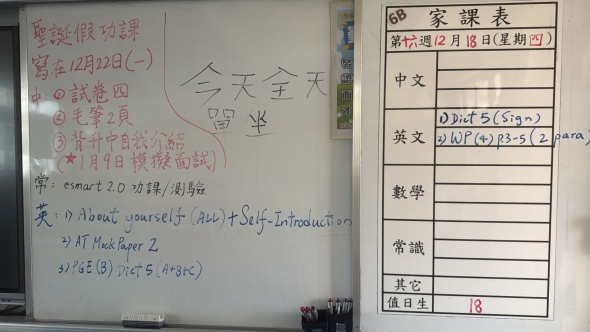 聖誕假功課
寫在12月22日(一)
中: ① 試卷四
② 毛筆2頁
③ 背升中自我介紹
(★1月9日模擬面試)
常: esmart 2.0 功課/測驗
英: 1) About yourself (ALL) + Self-Introduction
2) AT Mock Paper 2
3) PGE (B) Dict 5 (A+B+C)
今天全天
留半
6B
家課表
第十六週12月18日(星期四)
中文
英文
1) Dict 5 (Sign)
2) WP (4) P.3-5 (2 para)
數學
常識
其它
值日生 18